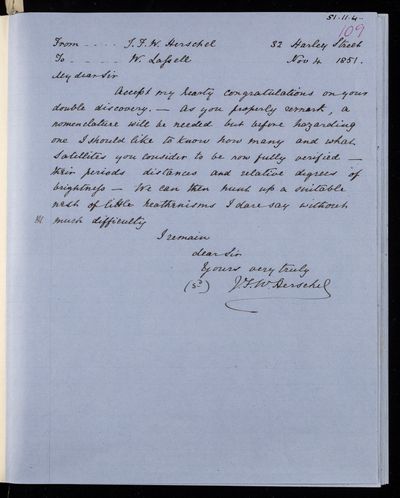 51.11.4
109
From .... J. F. W. Herschel 32 Harley Street
To ..... W. Lassell Nov 4 1851.
My dear Sir
Accept my hearty congratulations on your
double discovery. — As you properly remark, a
nomenclature will be needed but before hazarding
one I should like to know how many and what
satellites you consider to be now fully verified —
their periods distances and relative degrees of
brightness — We can then hunt up a suitable
nest of little heathenisms I dare say without
much difficulty
I remain
dear Sir
Yours very truly
(sd) J. F. W. Herschel